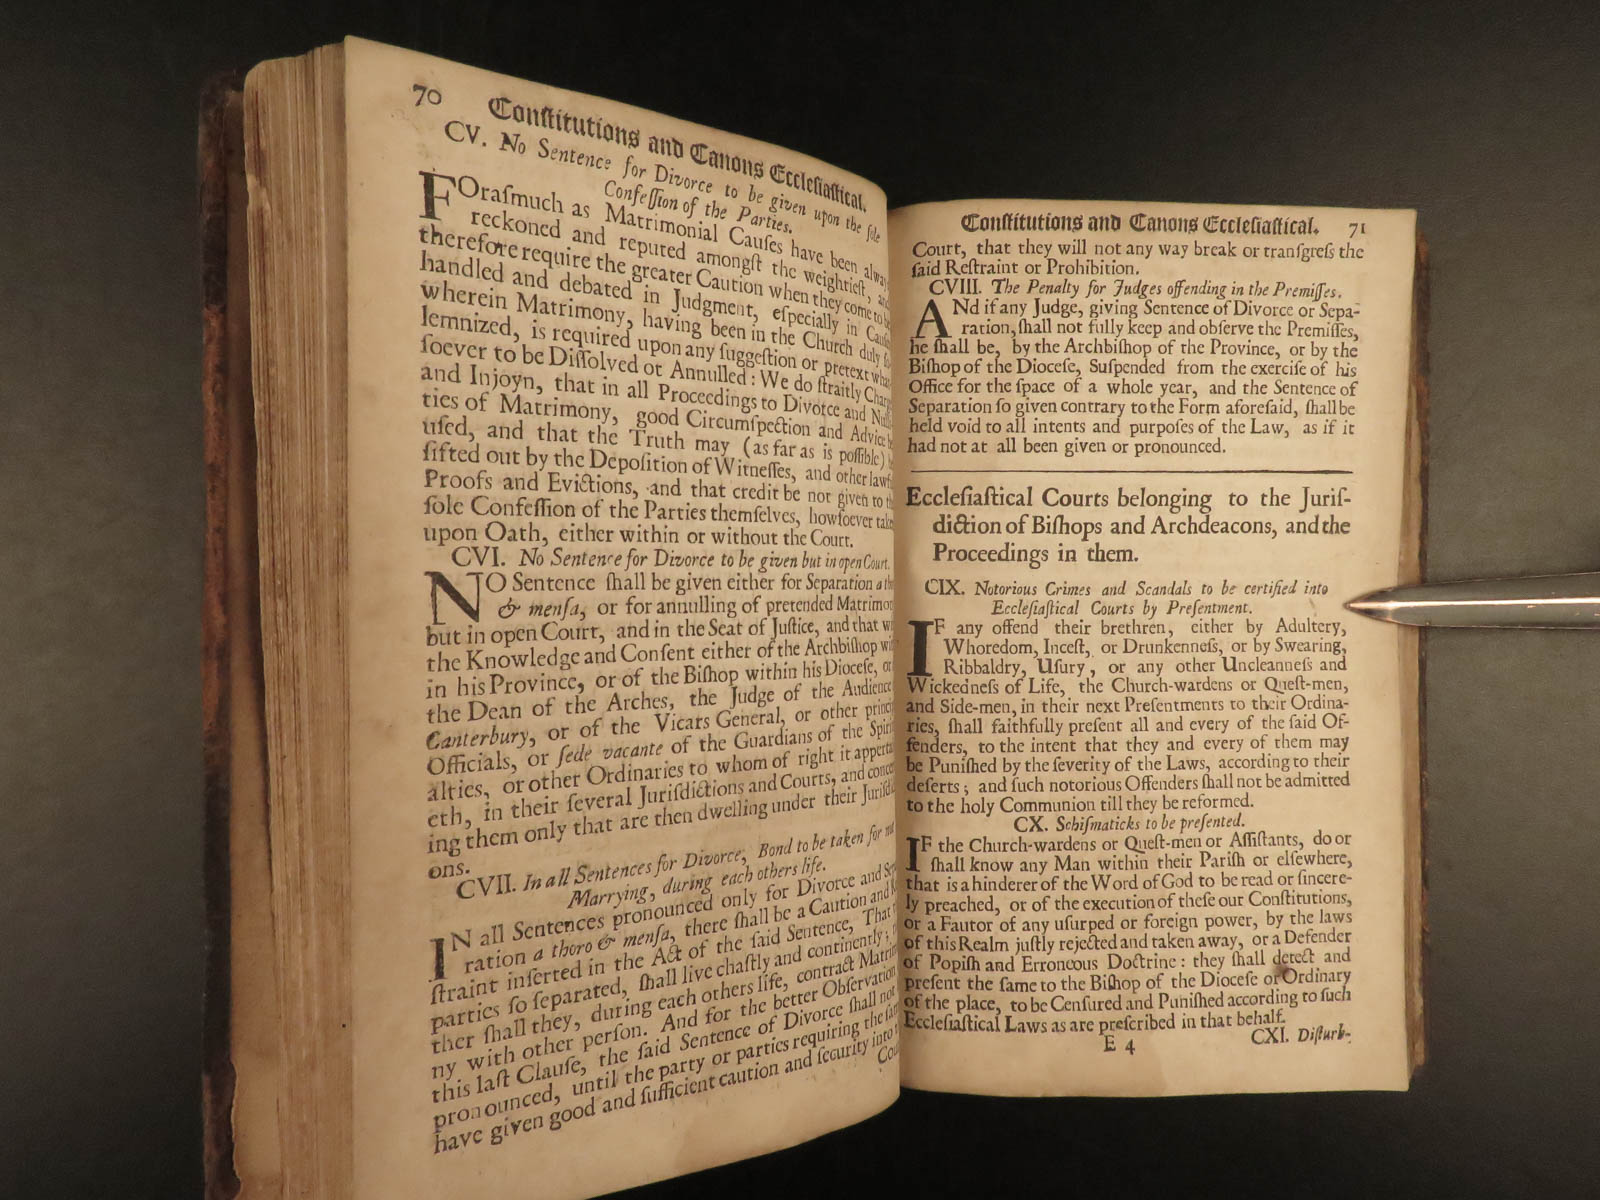 70 Conſtitutions and Canons Eccleſiaſtical.
CV. No Sentence for Divorce to be given upon the ſole
Confeſſion of the Parties.
FOraſmuch as Matrimonial Cauſes have been
reckoned and reputed amongſt the weightieſt,
therefore require the greater Caution when they come to be
handled and debated in Judgment, eſpecially in
wherein Matrimony, having been in the Church duly
lemnized, is required upon any ſuggeſtion or pretext
ſoever to be Diſſolved ot Annulled: We do ſtraitly
and Injoyn, that in all Proceedings to Divorce and
ties of Matrimony, good Circumſpection and Advice
uſed, and that the Truth may (as far as is poſſible)
ſifted out by the Depoſition of Witneſſes, and other
Proofs and Evictions, and that credit be not given to
ſole Confeſſion of the Parties themſelves, howſoever
upon Oath, either within or without the Court.
CVI. No Sentence for Divorce to be given but in open Court.
NO Sentence ſhall be given either for Separation a
& menſa, or for annulling of pretended
but in open Court, and in the Seat of Juſtice, and that
the Knowledge and Conſent either of the Archbiſhop
in his Province, or of the Biſhop within his Dioceſe,
the Dean of the Arches, the Judge of the Audience
Canterbury, or of the Vicars General, or other
Officials, or ſede vacante of the Guardians of the
alties, or other Ordinaries to whom of right it
eth, in their ſeveral Juriſdictions and Courts, and
ing them only that are then dwelling under their
ons.
CVII. In all Sentences for Divorce, Bond to be taken for
Marrying, during each others life.
IN all Sentences pronounced only for Divorce and
ration a thoro & menſa, there ſhall be a Caution and
ſtraint inſerted in the Act of the ſaid Sentence, That
parties ſo ſeparated, ſhall live chaſtly and continently;
ther ſhall they, during each others life, contract
ny with other perſon. And for the better Obſervation
this laſt Clauſe, the ſaid Sentence of Divorce ſhall not
pronounced, until the party or parties requiring the
have given good and ſufficient caution and ſecurity into
Conſtitutions and Canons Eccleſiaſtical. 71
Court, that they will not any way break or tranſgreſs the
ſaid Reſtraint or Prohibition.
CVIII. The Penalty for Judges offending in the Premiſſes.
ANd if any Judge, giving Sentence of Divorce or Sepa-
ration, ſhall not fully keep and obſerve the Premiſſes,
he ſhall be, by the Archbiſhop of the Province, or by the
Biſhop of the Dioceſe, Suſpended from the exerciſe of his
Office for the ſpace of a whole year, and the Sentence of
Separation ſo given contrary to the Form aforeſaid, ſhall be
held void to all intents and purpoſes of the Law, as if it
had not at all been given or pronounced.
Eccleſiaſtical Courts belonging to the Juriſ-
diction of Biſhops and Archdeacons, and the
Proceedings in them.
CIX. Notorious Crimes and Scandals to be certified into
Eccleſiaſtical Courts by Preſentment.
IF any offend their brethren, either by Adultery,
Whoredom, Inceſt, or Drunkenneſs, or by Swearing,
Ribbaldry, Uſury, or any other Uncleanneſs and
Wickedneſs of Life, the Church-wardens or Queſt-men,
and Side-men, in their next Preſentments to their Ordina-
ries, ſhall faithfully preſent all and every of the ſaid Of-
fenders, to the intent that they and every of them may
be Puniſhed by the ſeverity of the Laws, according to their
deſerts; and ſuch notorious Offenders ſhall not be admitted
to the holy Communion till they be reformed.
CX. Schiſmaticks to be preſented.
IF the Church-wardens or Queſt-men or Aſſiſtants, do or
ſhall know any Man within their Pariſh or elſewhere,
that is a hinderer of the Word of God to be read or ſincere-
ly preached, or of the execution of theſe our Conſtitutions,
or a Fautor of any uſurped or foreign power, by the laws
of this Realm juſtly rejected and taken away, or a Defender
of Popiſh and Erroneous Doctrine: they ſhall detect and
preſent the ſame to the Biſhop of the Dioceſe or Ordinary
of the place, to be Cenſured and Puniſhed according to ſuch
Eccleſiaſtical Laws as are preſcribed in that behalf.
E 4 CXI. Diſturb-